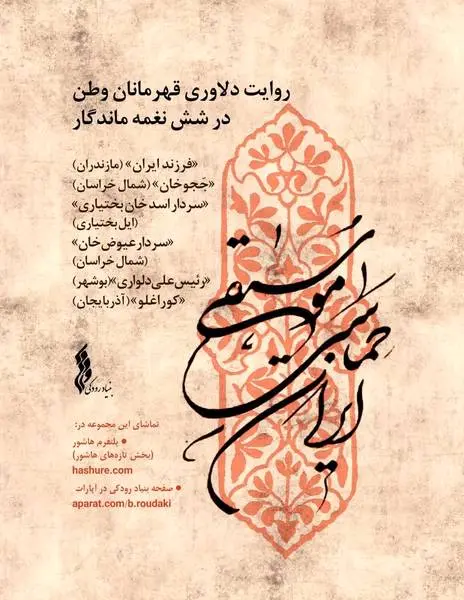 روایت دلاوری قهرمانان وطن
در شش نغمه ماندگار
«فرزند ایران» (مازندران)
«جَجوخان» (شمال خراسان)
«سردار اسدخان بختیاری»
(ایل بختیاری)
«سردار عیوض خان»
(شمال خراسان)
«رئیس‌علی دلواری» (بوشهر)
«کوراغلو» (آذربایجان)
موسیقی
حماسی
ایران
بنیاد رودکی
تماشای این مجموعه در:
• پلتفرم هاشور
(بخش تازه‌های هاشور)
hashure.com
• صفحه بنیاد رودکی در آپارات
aparat.com/b.roudaki